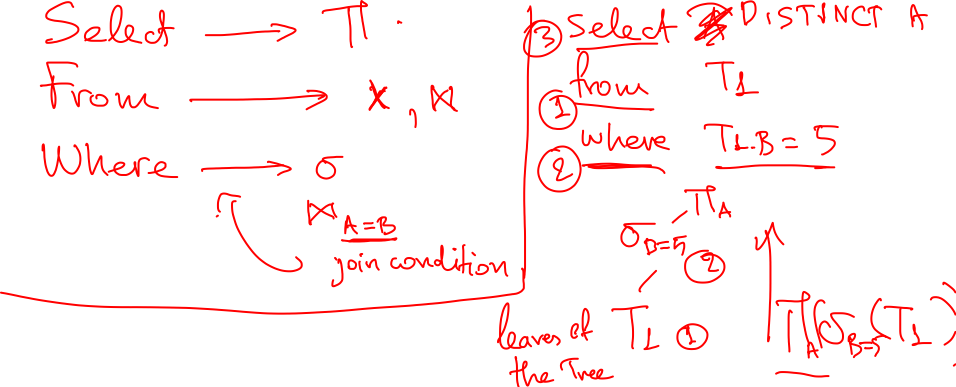 Select → Π
From → ×, ⋈
Where → σ
⋈ A=B
join condition
③ Select DISTINCT A
① from T1
② where T1.B = 5
Π A
σ B=5 ②
T1 ①
leaves of
the Tree
Π A (σ B=5 (T1))